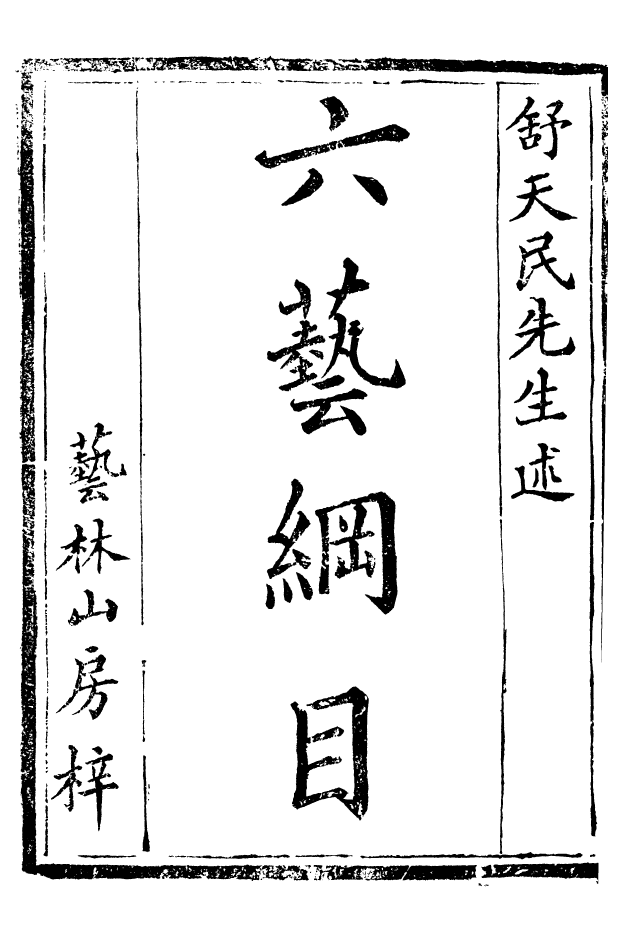 舒天民先生述
六藝綱目
藝林山房梓